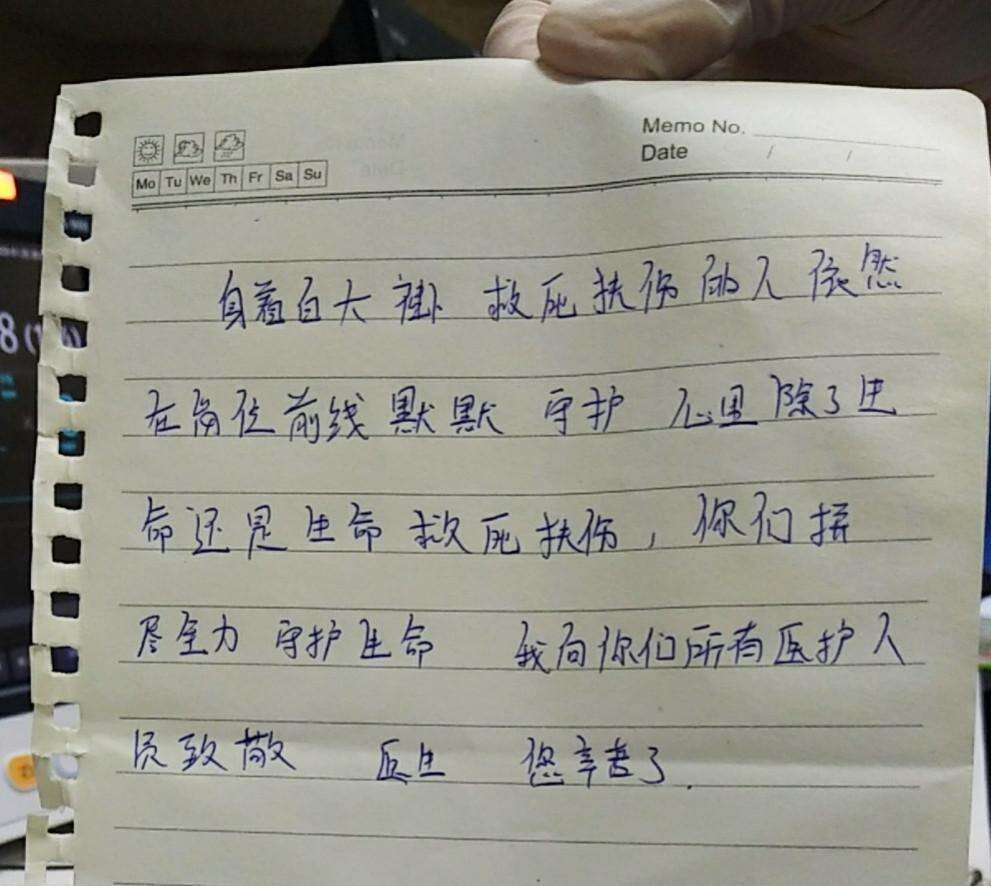 Memo No.
Date / /
Mo Tu We Th Fr Sa Su
身着白大褂 救死扶伤的人依然
在岗位前线默默 守护 心里除了生
命还是生命 救死扶伤，你们拼
尽全力 守护生命 我向你们所有医护人
员致敬 医生 您辛苦了.